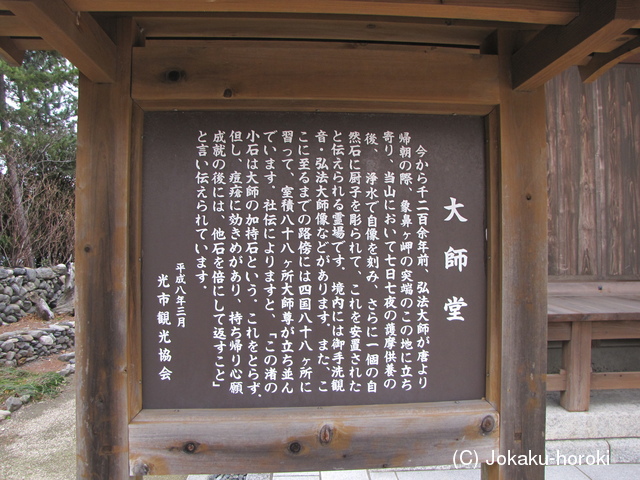 大師堂
今から千二百余年前、弘法大師が唐より
帰朝の際、象鼻ヶ岬の突端のこの地に立ち
寄り、当山において七日七夜の護摩供養の
後、浄水で自像を刻み、さらに一個の自
然石に厨子を彫られて、これを安置された
と伝えられる霊場です。境内には御手洗観
音・弘法大師像などがあります。また、こ
こに至るまでの路傍には四国八十八ヶ所に
習って、室積八十八ヶ所大師尊が立ち並ん
でいます。社伝によりますと、「この渚の
小石は大師の加持石という、これをとらず、
但し、痘瘡に効きめがあり、持ち帰り心願
成就の後には、他石を倍にして返すこと」
と言い伝えられています。
平成八年三月
光市観光協会
(C) Jokaku-horoki